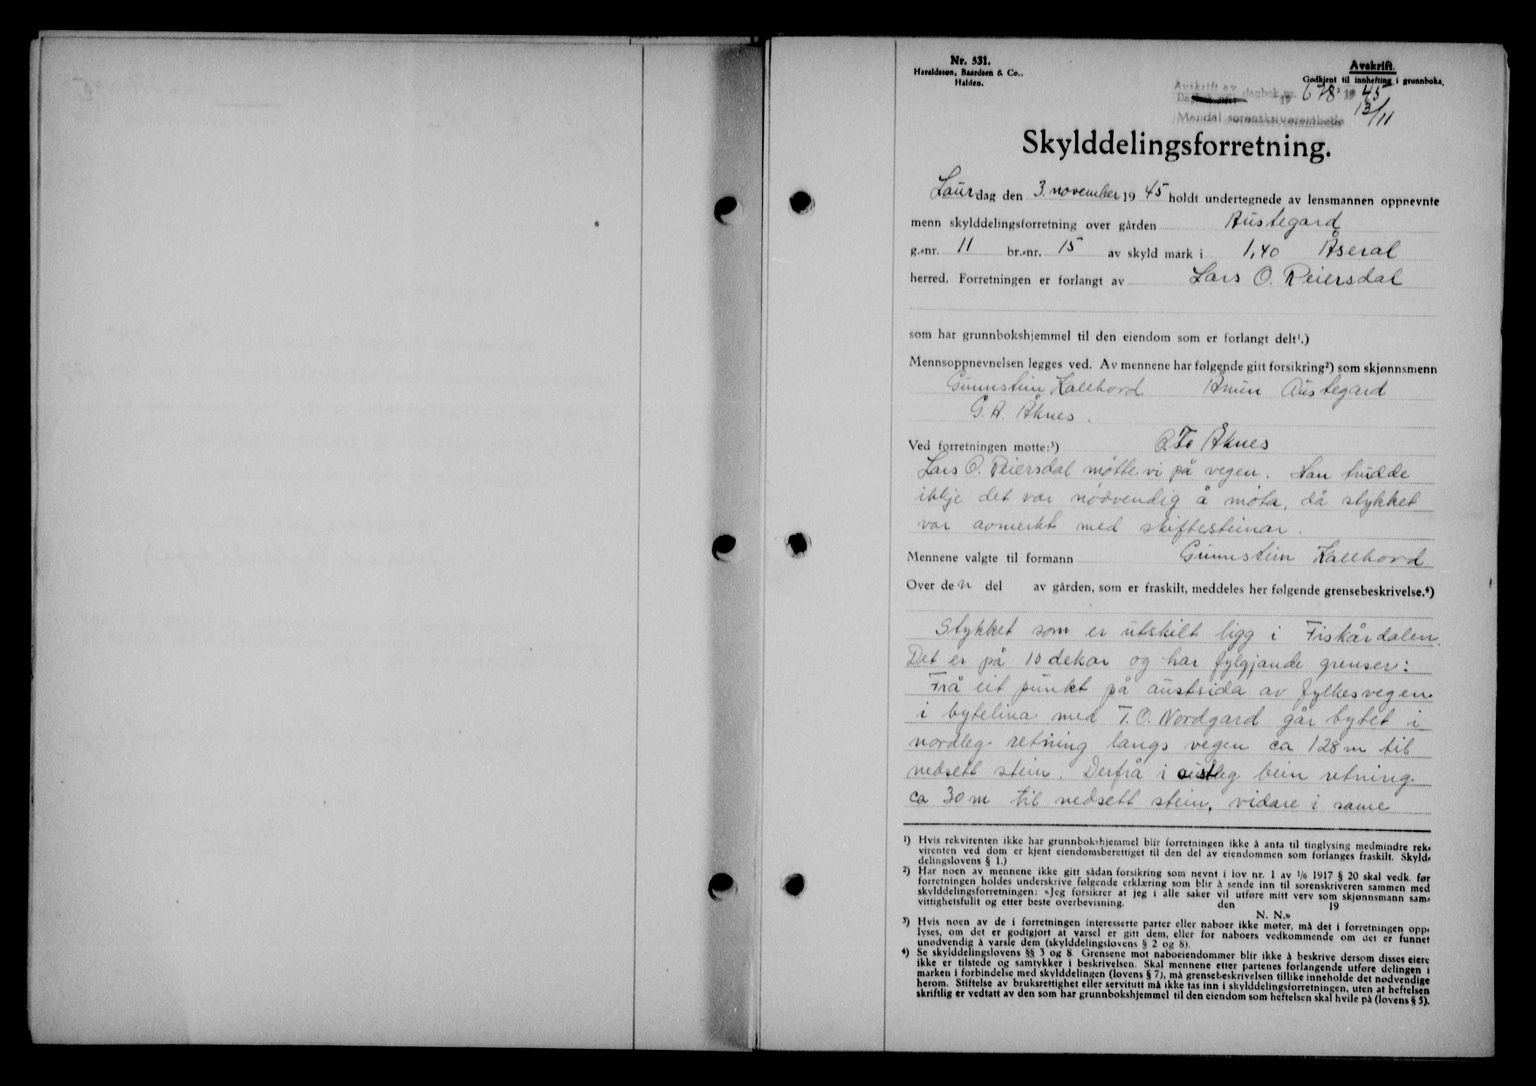 Nr. 531.
Haraldssøn, Baardsen & Co.,
Halden.
Avskrift.
Godkjent til innhefting i grunnboka.
Avskrift av
dagbok nr. 678 19 45
13/11
Mandal sorenskriverembede
Skylddelingsforretning.
Laurdag den 3. november 19 45 holdt undertegnede av lensmannen oppnevnte
menn skylddelingsforretning over gården Austegard
g.-nr. 11 br.-nr. 15 av skyld mark i 1,40 Åseral
herred. Forretningen er forlangt av Lars O. Reiersdal
som har grunnbokshjemmel til den eiendom som er forlangt delt¹.)
Mennsoppnevnelsen legges ved. Av mennene har følgende gitt forsikring²) som skjønnsmenn
Gunnstein Kallhovd Ånun Austegard
G. A. Åknes.
Ved forretningen møtte:³) O. To Åknes
Lars O. Reiersdal møtte vi på vegen. Han trudde
ikkje det var nødvendig å møta, då stykket
var avmerkt med skiftesteinar.
Mennene valgte til formann Gunnstein Kallhovd
Over den del av gården, som er fraskilt, meddeles her følgende grensebeskrivelse.⁴)
Stykket som er utskilt ligg i Fiskårdalen.
Det er på 10 dekar og har fylgjande grenser:
Frå eit punkt på austsida av fylkesvegen
i bytelina med T. O. Nordgard går bytet i
nordleg retning langs vegen ca 128 m til
nedsett stein. Derfrå i austleg bein retning
ca 30 m til nedsett stein, vidare i same
¹) Hvis rekvirenten ikke har grunnbokshjemmel blir forretningen ikke å anta til tinglysing medmindre rek-
virenten ved dom er kjent eiendomsberettiget til den del av eiendommen som forlanges fraskilt. Skyld-
delingslovens § 1.)
²) Har noen av mennene ikke gitt sådan forsikring som nevnt i lov nr. 1 av 1/6 1917 § 20 skal vedk. før
forretningen holdes underskrive følgende erklæring som blir å sende inn til sorenskriveren sammen med
skylddelingsforretningen: »Jeg forsikrer at jeg i alle saker vil utføre mitt verv som skjønnsmann sam-
vittighetsfullt og etter beste overbevisning. den 19
N. N.»
³) Hvis noen av de i forretningen interesserte parter eller naboer ikke møter, må det i forretningen opp-
lyses, om det er godtgjort at varsel er gitt dem, eller for naboers vedkommende om det er funnet
unødvendig å varsle dem (skylddelingslovens § 2 og 8).
⁴) Se skylddelingslovens §§ 3 og 8. Grensene mot naboeiendommer blir ikke å beskrive dersom disses eiere
ikke er tilstede og samtykker i beskrivelsen. Skal mennene etter partenes forlangende utføre delingen i
marken i forbindelse med skylddelingen (lovens § 7), må grensebeskrivelsen tillike inneholde det nødvendige
herom. Stiftelse av bruksrettighet eller servitutt må ikke tas inn i skylddelingsforretningen, uten at heftelsen
skriftlig er vedtatt av den som har grunnbokshjemmel til den eiendom som heftelsen skal hvile på (lovens § 5).